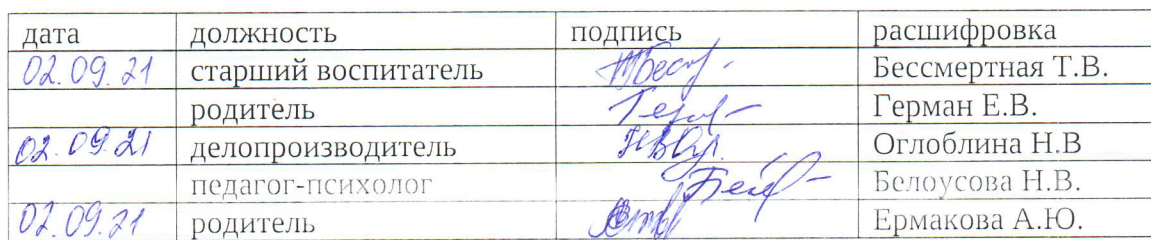 дата должность подпись расшифровка
02.09.21 старший воспитатель Бессмертная Т.В.
родитель Герман Е.В.
02.09.21 делопроизводитель Оглоблина Н.В
педагог-психолог Белоусова Н.В.
02.09.21 родитель Ермакова А.Ю.